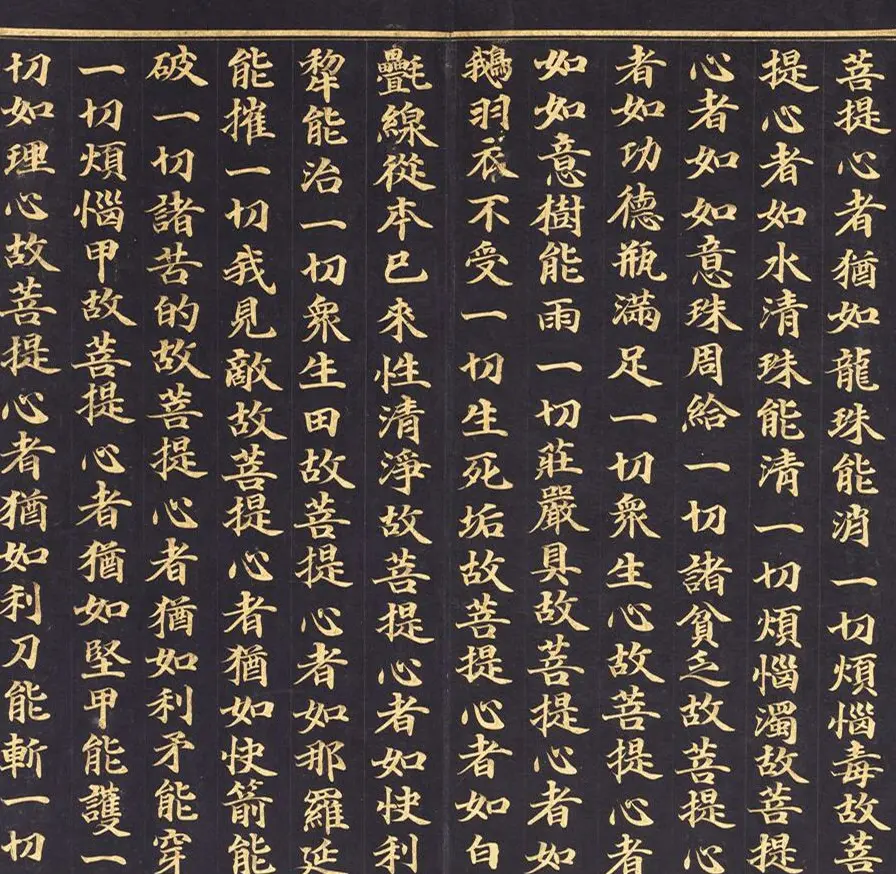 菩提心者猶如龍珠能消一切煩惱毒故菩
提心者如水清珠能清一切煩惱濁故菩提
心者如如意珠周給一切諸貧乏故菩提心
者如功德瓶滿足一切衆生心故菩提心者
如如意樹能雨一切莊嚴具故菩提心者如
鵝羽衣不受一切生死垢故菩提心者如白
氎線從本已來性清淨故菩提心者如快利
犂能治一切衆生田故菩提心者如那羅延
能摧一切我見敵故菩提心者猶如快箭能
破一切諸苦的故菩提心者猶如利矛能穿
一切煩惱甲故菩提心者猶如堅甲能護一
切如理心故菩提心者猶如利刀能斬一切